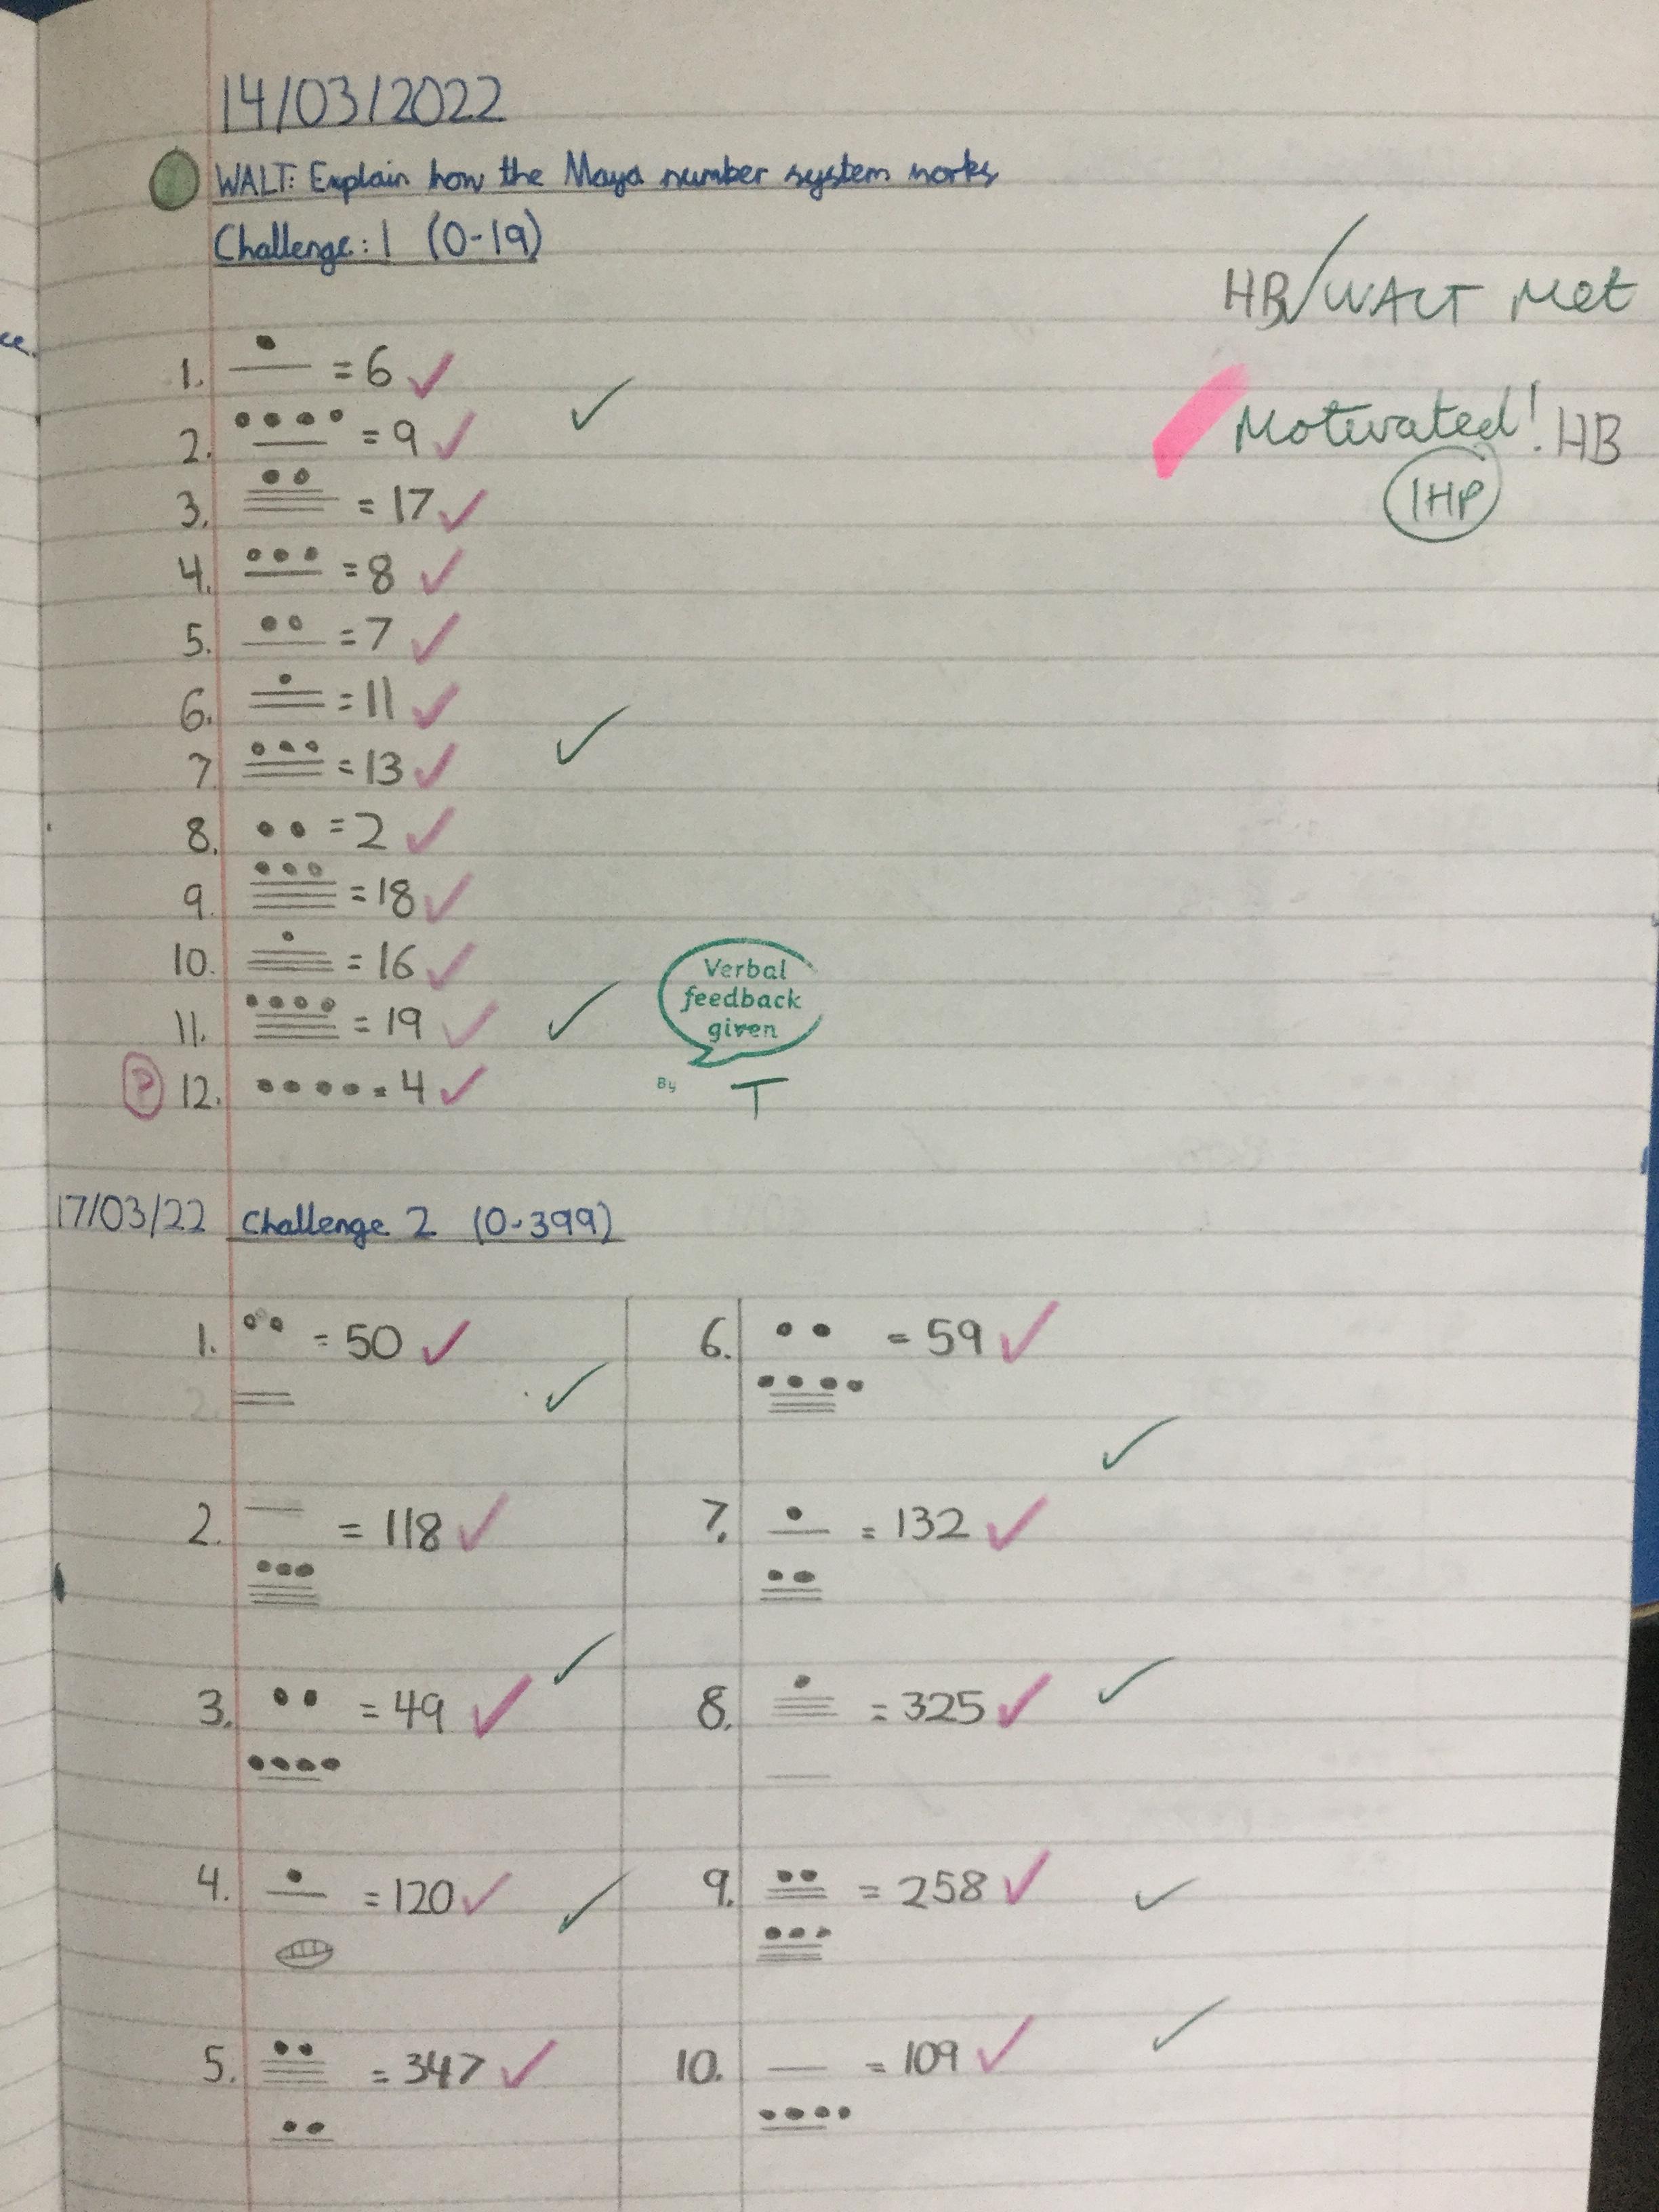 14/03/2022
WALT: Explain how the Maya number system works
Challenge: 1 (0-19)
HB WALT Met
Motivated! HB
1HP
1. = 6
2. = 9
3. = 17
4. = 8
5. = 7
6. = 11
7 = 13
8. = 2
9. = 18
10. = 16
11. = 19
? 12. = 4
Verbal
feedback
given
By T
17/03/22 Challenge 2 (0-399)
1. = 50
2.
2. = 118
3. = 49
4. = 120
5. = 347
6. = 59
7. = 132
8. = 325
9. = 258
10. = 109